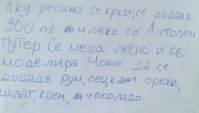 1kg ресана се крои, се додава
300 ml млеко со 1 столен
путер. Се меша лесно и се
моделира. Може да се
додаде рум, сецкани ореви,
шлаг, крем, чоколадо.